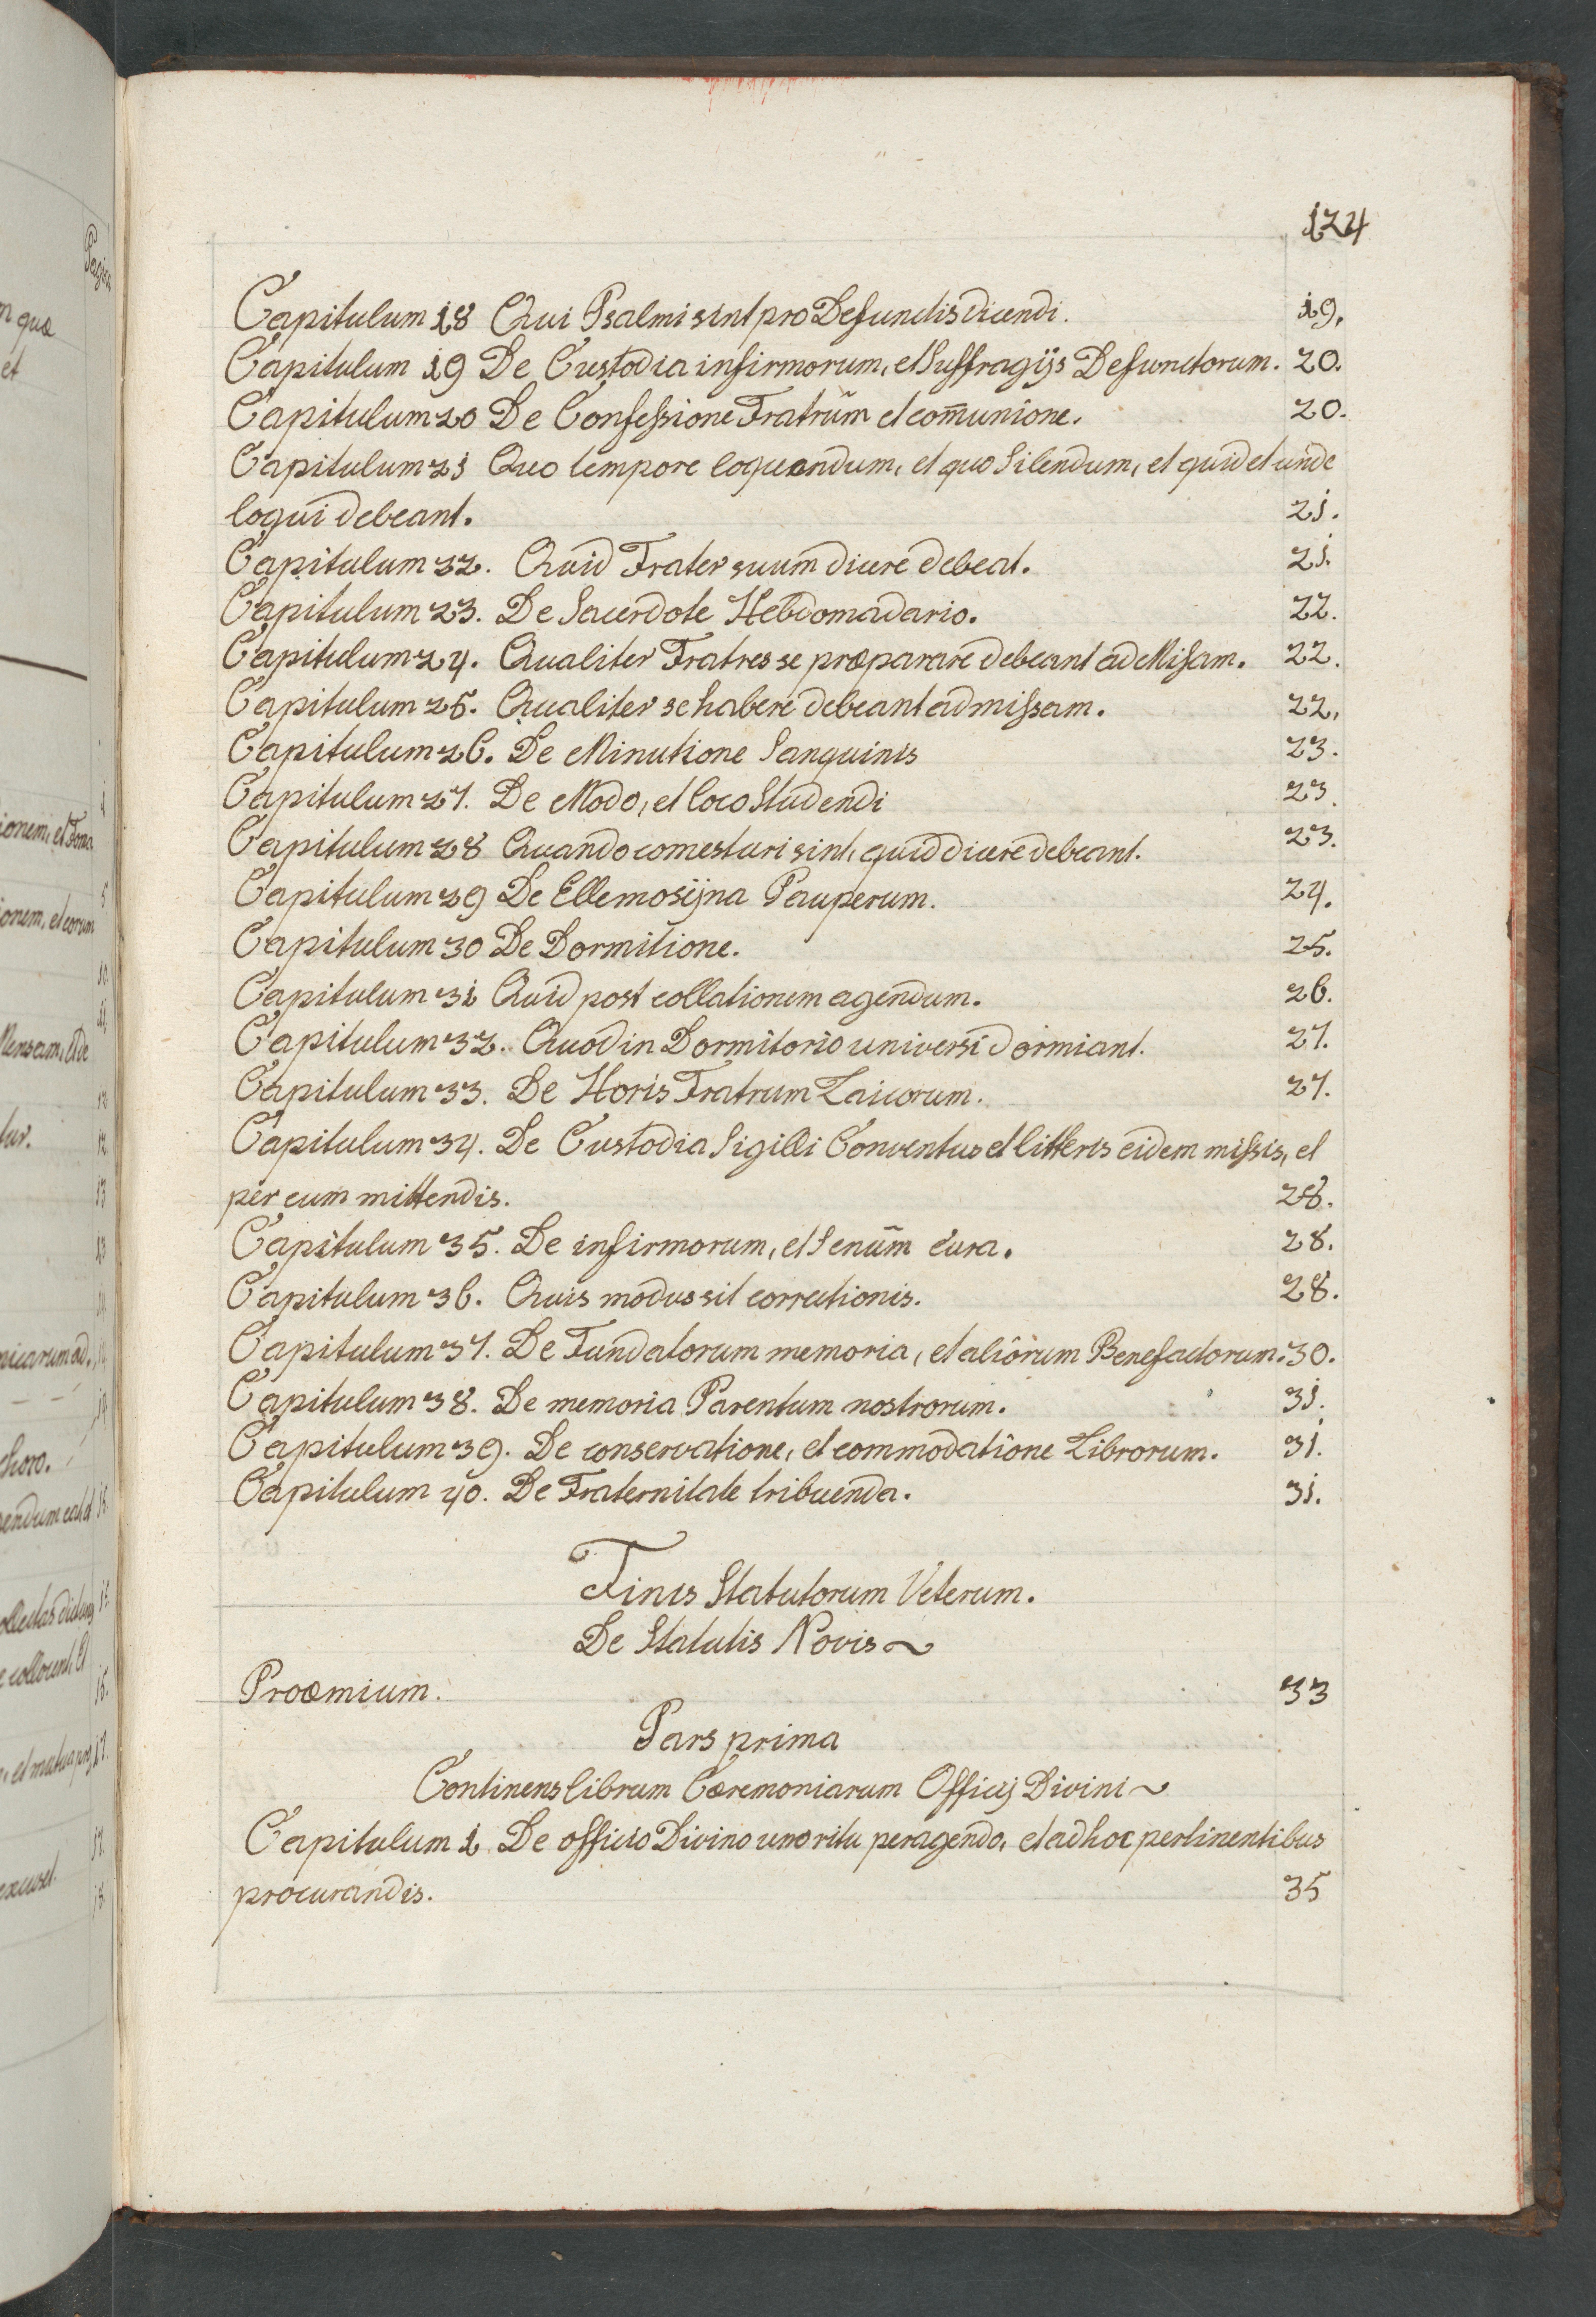 124
Capitulum 18 Qui Psalmi sint pro Defunctis dicendi. 19.
Capitulum 19 De Custodia infirmorum, et Suffragijs Defunctorum. 20.
Capitulum 20 De Confessione Fratrum et com̄unione. 20.
Capitulum 21 Quo tempore loquendum, et quo Silendum, et quid et unde
loqui debeant. 21.
Capitulum 32. Quid Frater suum dicere debeat. 21.
Capitulum 23. De Sacerdote Hebdomadario. 22.
Capitulum 24. Qualiter Fratres se præparare debeant ad Missam. 22.
Capitulum 25. Qualiter se habere debeant ad missam. 22.
Capitulum 26. De Minutione Sanguinis 23.
Capitulum 27. De Modo, et loco Studendi 23.
Capitulum 28 Quando comesturi sint, quid dicere debeant. 23.
Capitulum 29 De Ellemosÿna Pauperum. 24.
Capitulum 30 De Dormitione. 25.
Capitulum 31 Quid post collationem agendum. 26.
Capitulum 32. Quod in Dormitorio universi dormiant. 27.
Capitulum 33. De Horis Fratrum Laicorum. 27.
Capitulum 34. De Custodia Sigilli Conventus et litteris eidem missis, et
per eum mittendis. 28.
Capitulum 35. De infirmorum, et Senum cura. 28.
Capitulum 36. Quis modus sit correctionis. 28.
Capitulum 37. De Fundatorum memoria, et aliorum Benefactorum. 30.
Capitulum 38. De memoria Parentum nostrorum. 31.
Capitulum 39. De conservatione, et commodatione Librorum. 31.
Capitulum 40. De Fraternitate tribuenda. 31.
Finis Statutorum Veterum.
De Statutis Novis
Proœmium. 33
Pars prima
Continens librum Cæremoniarum Officij Divini
Capitulum 1 De officio Divino uno ritu peragendo, et ad hoc pertinentibus
procurandis. 35